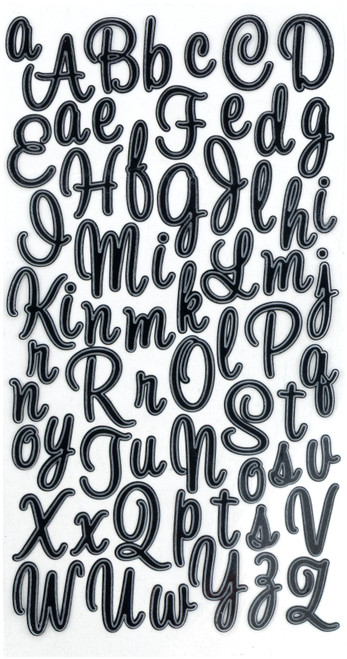 a A B b c C D
E a e F e d g
H f G J l h i
I M i L m j
K i n m k l P
r R r O q
n S t
o y T u N o s v
X x Q p t s V
W U w Y z Z